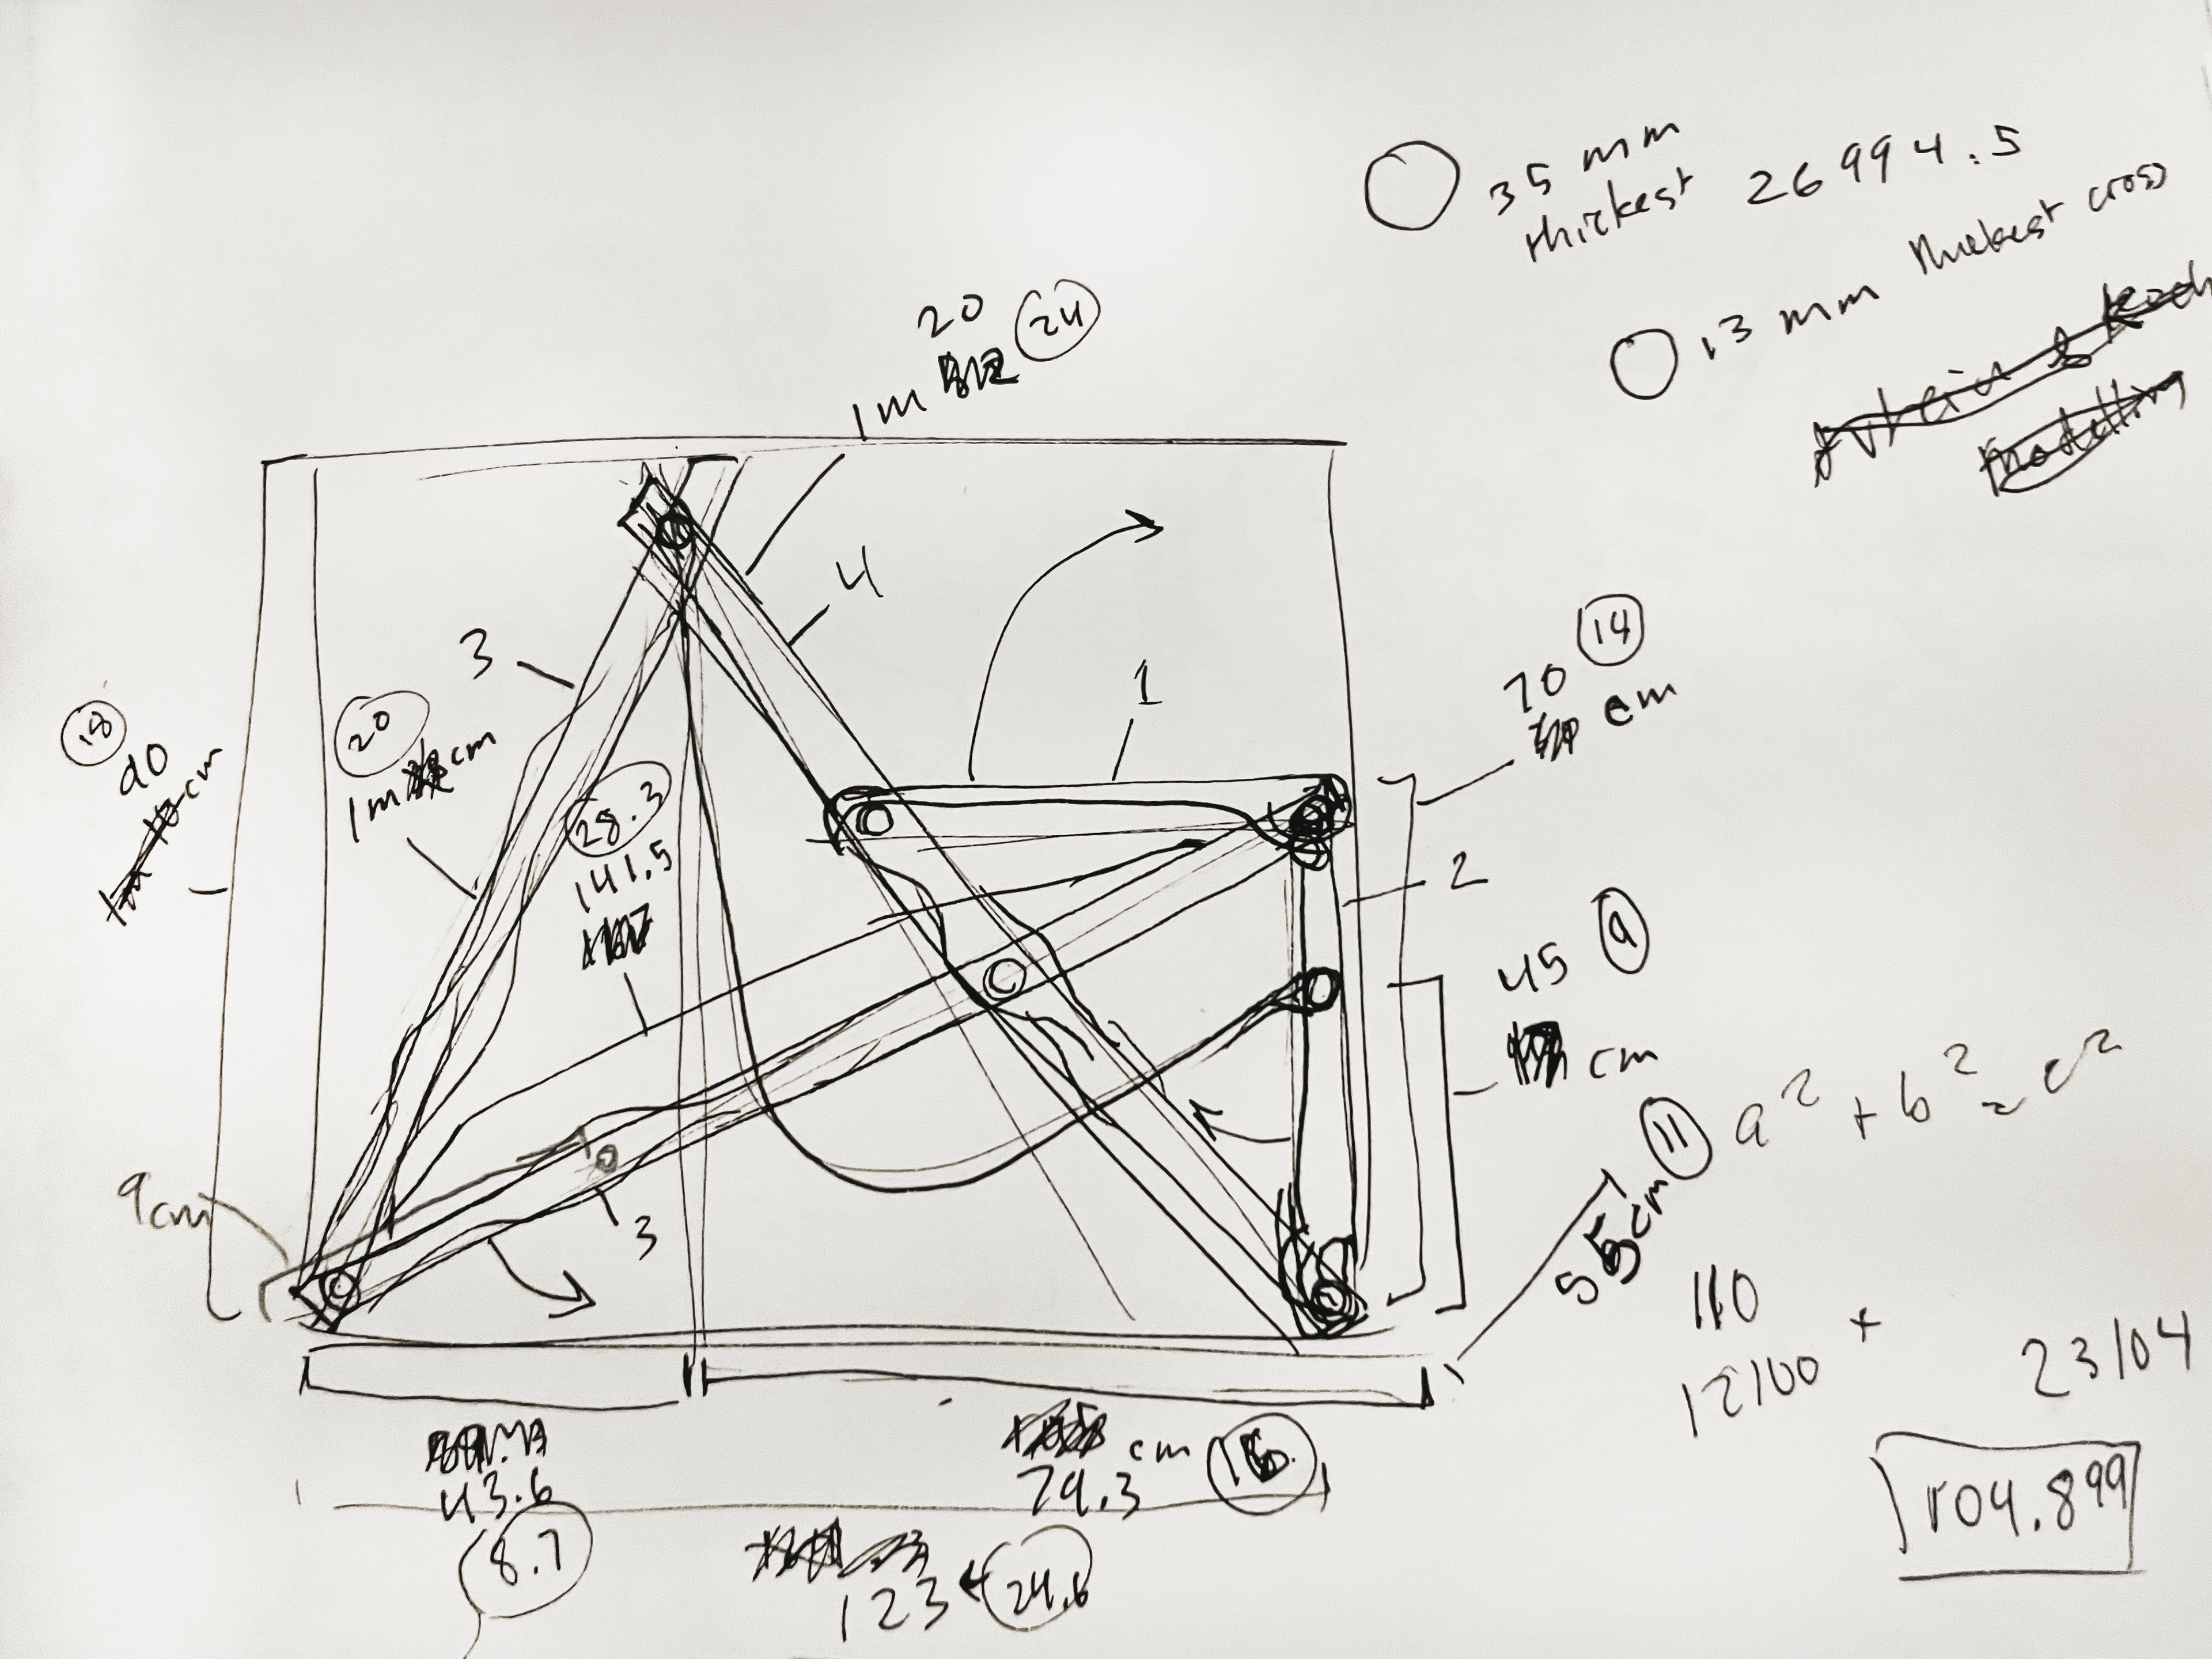 35 mm
thickest 26994.5
13 mm thickest cross
20 24
1m
4
3
14
70
cm
1
18
90
cm
20
1m cm
28.3
141.5
2
45 9
cm
a² + b² = c²
11
55cm
9cm
3
110
12100 +
23104
104.899
43.6
8.7
cm
79.3
123 ← 24.6